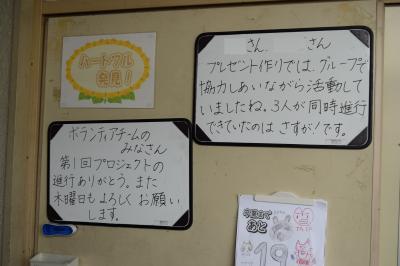 ハートフル
発見！
さん　さん
プレゼント作りでは、グループで
協力しあいながら活動して
いましたね。3人が同時進行
できていたのは さすが！です。
ボランティアチームの
みなさん
第1回プロジェクトの
進行ありがとう。また
木曜日もよろしくお願い
します。
あと
19